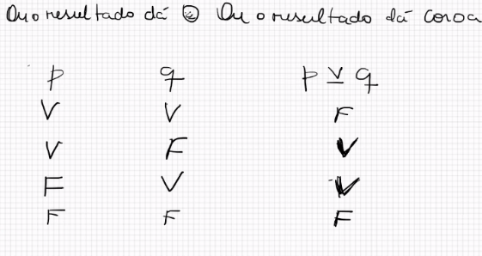 Ou o resultado dá ☺ Ou o resultado dá coroa
p q p ⊻ q
V V F
V F V
F V V
F F F